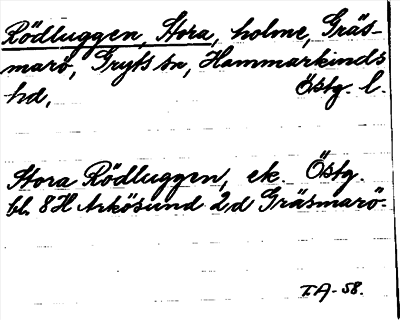 Rödluggen, Stora, holme, Gräs-
marö, Gryts sn, Hammarkinds
hd, Östg. l.
Stora Rödluggen, ek. Östg.
bl. 8H Arkösund 2d Gräsmarö.
T.A-58.